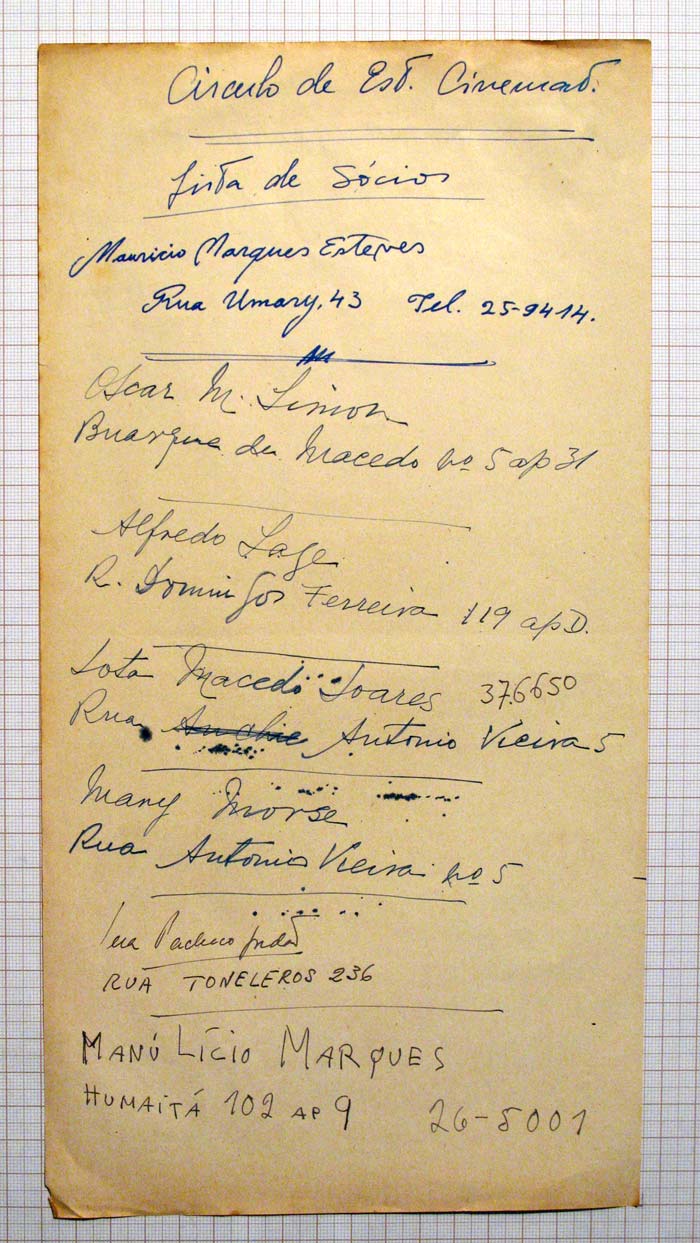 Circulo de Est. Cinemat.
Lista de Sócios
Mauricio Marques Esteves
Rua Umary, 43 Tel. 25-9414.
Oscar M. Simon
Buarque de Macedo nº 5 ap 31
Alfredo Lage
R. Domingos Ferreira 119 ap D.
Lota Macedo Soares 376650
Rua Antonio Vieira 5
Mary Morse
Rua Antonio Vieira nº 5
Pacheco
RUA TONELEROS 236
MANÚ LÍCIO MARQUES
HUMAITÁ 102 AP 9 26-5001